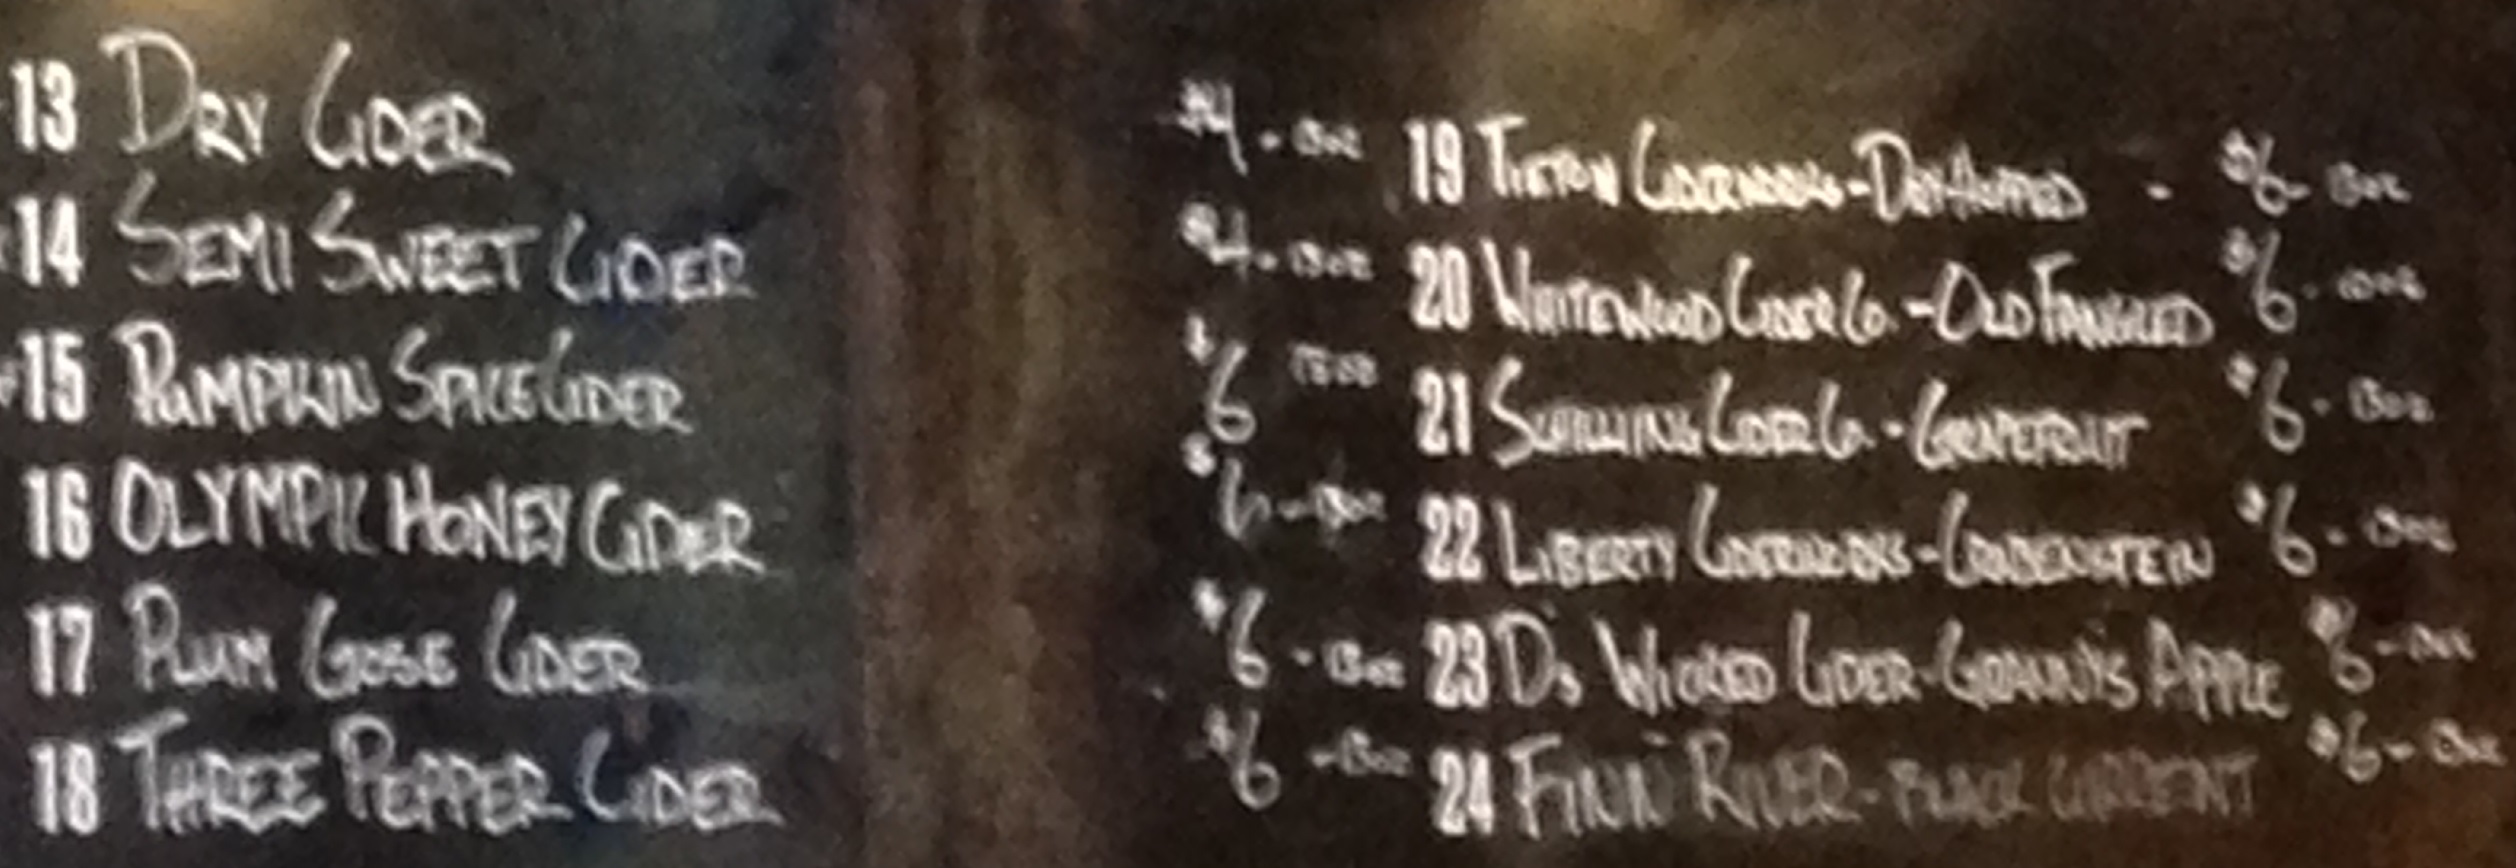 13 DRY CIDER $4 -
14 SEMI SWEET CIDER $4 -
15 PUMPKIN SPICE CIDER $6
16 OLYMPIC HONEY CIDER $6 -
17 PLUM GOSE CIDER $6 -
18 THREE PEPPER CIDER $6 -
19 TIETON CIDERWORKS - DRY HOPPED - $6 -
20 WHITEWOOD CIDER Co. - OLD FANGLED $6 -
21 SCHILLING CIDER Co. - GRAPEFRUIT $6 -
22 LIBERTY CIDERWORKS - CRABENSTEIN $6 -
23 D's WICKED CIDER - GRANNY'S APPLE $6 -
24 FINN RIVER - BLACK CURRENT $6 -